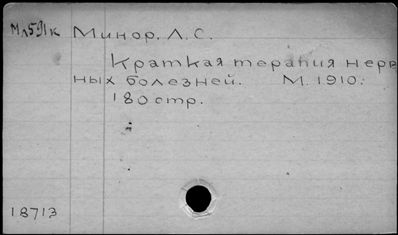 Мл591к Минор. Л. С.
Краткая терапия нерв
ных болезней. М. 1910.
180 стр.
18713